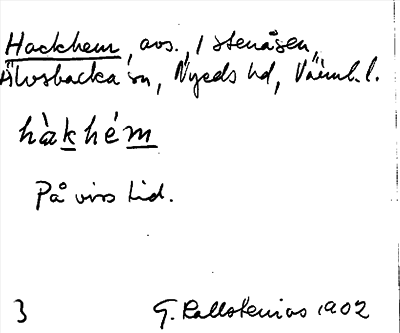 Hackhem, avs., i Stenåsen,
Älvsbacka sn, Nyeds hd, Värml. l.
hàkhém
På viss tid.
3 G. Kallstenius 1902